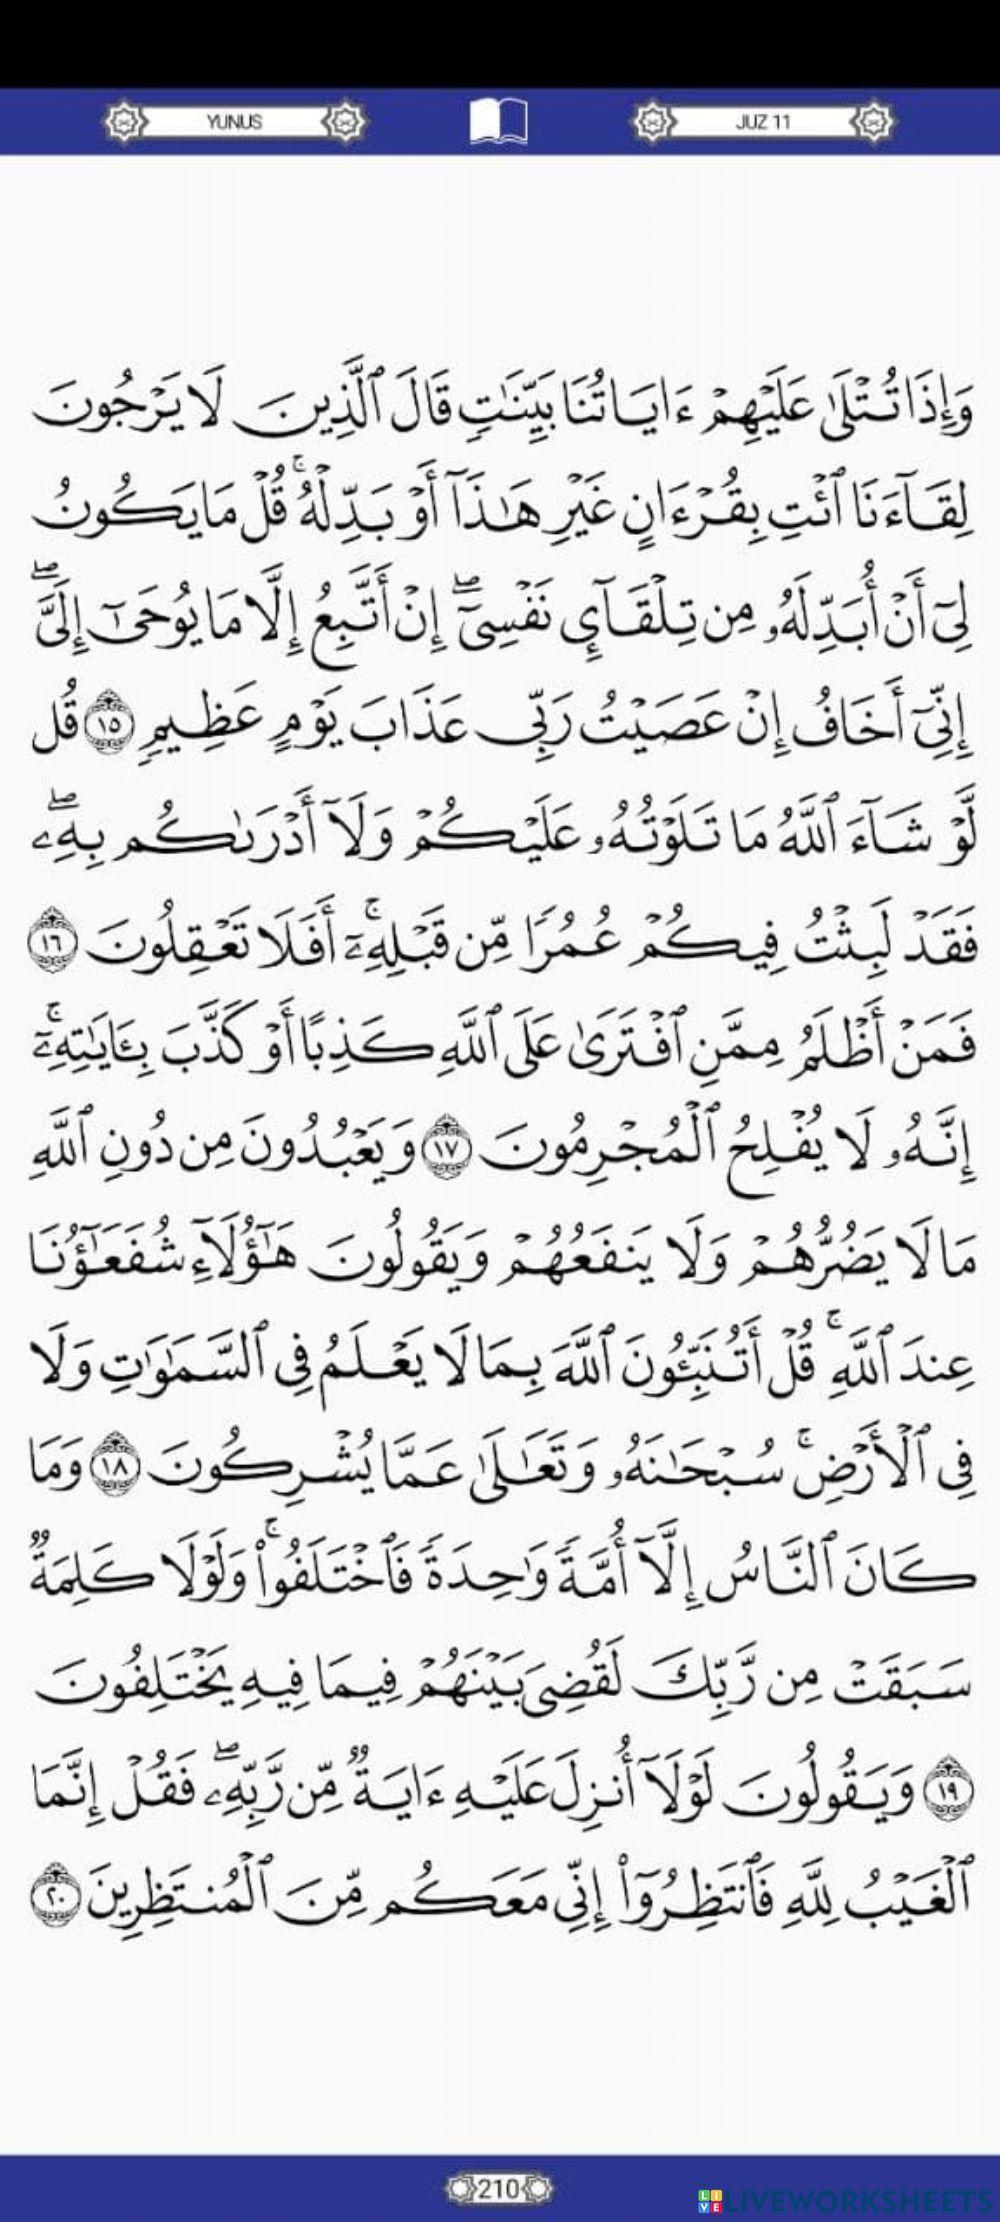 YUNUS
JUZ 11
وَإِذَا تُتۡلَىٰ عَلَيۡهِمۡ ءَايَاتُنَا بَيِّنَٰتٖ قَالَ ٱلَّذِينَ لَا يَرۡجُونَ
لِقَآءَنَا ٱئۡتِ بِقُرۡءَانٍ غَيۡرِ هَٰذَآ أَوۡ بَدِّلۡهُۚ قُلۡ مَا يَكُونُ
لِيٓ أَنۡ أُبَدِّلَهُۥ مِن تِلۡقَآيِٕ نَفۡسِيٓۖ إِنۡ أَتَّبِعُ إِلَّا مَا يُوحَىٰٓ إِلَيَّۖ
إِنِّيٓ أَخَافُ إِنۡ عَصَيۡتُ رَبِّي عَذَابَ يَوۡمٍ عَظِيمٖ ١٥ قُل
لَّوۡ شَآءَ ٱللَّهُ مَا تَلَوۡتُهُۥ عَلَيۡكُمۡ وَلَآ أَدۡرَىٰكُم بِهِۦۖ
فَقَدۡ لَبِثۡتُ فِيكُمۡ عُمُرٗا مِّن قَبۡلِهِۦٓۚ أَفَلَا تَعۡقِلُونَ ١٦
فَمَنۡ أَظۡلَمُ مِمَّنِ ٱفۡتَرَىٰ عَلَى ٱللَّهِ كَذِبًا أَوۡ كَذَّبَ بِـَٔايَٰتِهِۦٓۚ
إِنَّهُۥ لَا يُفۡلِحُ ٱلۡمُجۡرِمُونَ ١٧ وَيَعۡبُدُونَ مِن دُونِ ٱللَّهِ
مَا لَا يَضُرُّهُمۡ وَلَا يَنفَعُهُمۡ وَيَقُولُونَ هَٰٓؤُلَآءِ شُفَعَٰٓؤُنَا
عِندَ ٱللَّهِۚ قُلۡ أَتُنَبِّـُٔونَ ٱللَّهَ بِمَا لَا يَعۡلَمُ فِي ٱلسَّمَٰوَٰتِ وَلَا
فِي ٱلۡأَرۡضِۚ سُبۡحَٰنَهُۥ وَتَعَٰلَىٰ عَمَّا يُشۡرِكُونَ ١٨ وَمَا
كَانَ ٱلنَّاسُ إِلَّآ أُمَّةٗ وَٰحِدَةٗ فَٱخۡتَلَفُواْۚ وَلَوۡلَا كَلِمَةٞ
سَبَقَتۡ مِن رَّبِّكَ لَقُضِيَ بَيۡنَهُمۡ فِيمَا فِيهِ يَخۡتَلِفُونَ
١٩ وَيَقُولُونَ لَوۡلَآ أُنزِلَ عَلَيۡهِ ءَايَةٞ مِّن رَّبِّهِۦۖ فَقُلۡ إِنَّمَا
ٱلۡغَيۡبُ لِلَّهِ فَٱنتَظِرُوٓاْ إِنِّي مَعَكُم مِّنَ ٱلۡمُنتَظِرِينَ ٢٠
210
LIVEWORKSHEETS